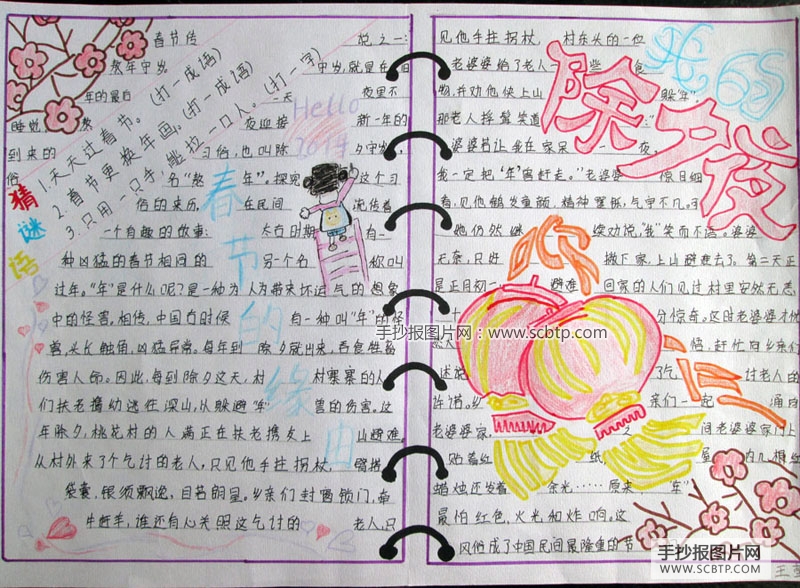 春节传 说之一:
熬年守岁 守岁,就是在旧
年的最后 一天 夜里不
睡觉 熬 夜迎接 新一年的
到来的 习俗,也叫除 夕守岁,
俗 名“熬 年”。探究 这个习
俗的来历, 在民间 流传着
一个有趣的故事: 太古时期 有一
种凶猛的春节相同的 另一个名 称叫
过年。“年”是什么呢?是一种为 人为带来坏运气的想象
中的怪害,相传,中国古时候 有一种叫“年”的怪
兽,头长触角,凶猛异常。每年到 除夕就出来,吞食牲畜
伤害人命。因此,每到除夕这天,村 村寨寨的人
们扶老携幼逃往深山,从躲避“年” 兽的伤害。这
年除夕,桃花村的人满正在扶老携女上 山避难。
从村外来了个乞讨的老人,只见他手拄拐杖,
袋囊,银须飘逸,目若朗星。乡亲们封窗锁门,牵
牛赶羊,谁还有心关照这乞讨的 老人,只
猜谜语
1.天天过春节。(打一成语)
2.春节更换年画。(打一成语)
3.只用一只手,继拉一口人。(打一字)
Hello
2014
春节的缘由
见他手拄拐杖, 村东头的一位
老婆婆给了老人一 些 食
物,并劝他快上山 躲“年”
那老人捋髯笑道 :“
婆婆若让我在家呆 一 夜,
我一定把‘年’害赶走。”老婆婆 惊目细
看,见他鹤发童颜,精神矍铄,气宇不凡。可
她仍然继 续劝说,“我”笑而不语。婆婆
无奈,只好 撇下家,上山避难去了。第二天正
是正月初一 避难 回家的人们见过村里安然无恙,
十 分惊奇。这时老婆婆才恍
悟,赶忙向乡亲们
述说 了乞 讨老人的
许诺。乡 亲们一起 涌向
老婆婆家, 之 间老婆婆家门上
贴着红 纸 屋 内几根红
蜡烛还发着 余光……原来, 年”
最怕红色,火光和炸响。这
风俗成了中国民间最隆重的节
我的
除夕夜
手抄报图片网:www.scbtp.com
手抄报图片网
www.SCBTP.COM